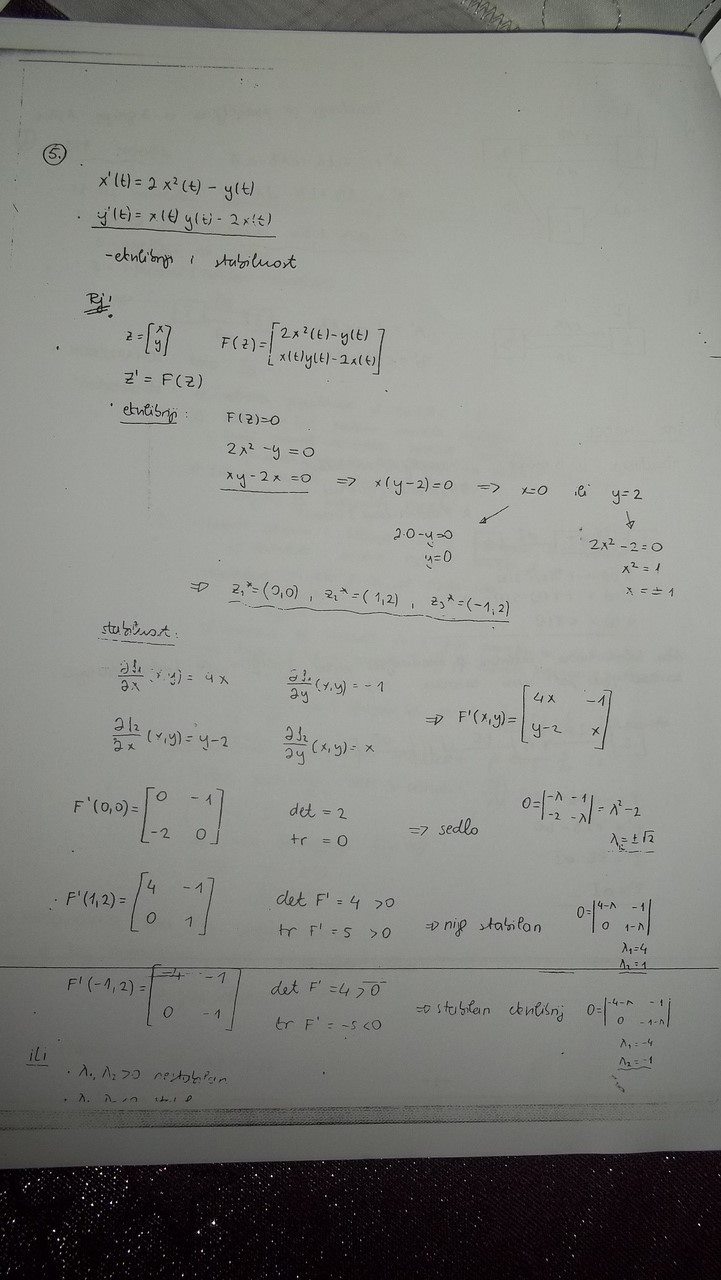 5.
x'(t) = 2x²(t) - y(t)
y'(t) = x(t) y(t) - 2x(t)
- ekvilibriji i stabilnost
Rj!
z = [x y]   F(z) = [2x²(t) - y(t)   x(t)y(t) - 2x(t)]
z' = F(z)
ekvilibriji:   F(z)=0
2x² - y = 0
xy - 2x = 0 => x(y-2)=0 => x=0 ili y=2
2·0-y=0   2x²-2=0
y=0   x²=1
x=±1
=> z₁*=(0,0), z₂*=(1,2), z₃*=(-1,2)
stabilnost:
∂f₁/∂x (x,y) = 4x   ∂f₁/∂y (x,y) = -1
=> F'(x,y) = [4x -1   y-2 x]
∂f₂/∂x (x,y) = y-2   ∂f₂/∂y (x,y) = x
F'(0,0) = [0 -1   -2 0]   det = 2   tr = 0   => sedlo   0 = |-λ -1   -2 -λ| = λ²-2
λ = ±√2
F'(1,2) = [4 -1   0 1]   det F' = 4 >0   tr F' = 5 >0   => nije stabilan   0 = |4-λ -1   0 1-λ|
λ₁=4
λ₂=1
F'(-1,2) = [-4 -1   0 -1]   det F' = 4 > 0   tr F' = -5 < 0   => stabilan ekvilibrij   0 = |-4-λ -1   0 -1-λ|
λ₁=-4
λ₂=-1
ili
· λ₁, λ₂ > 0 nestabilan